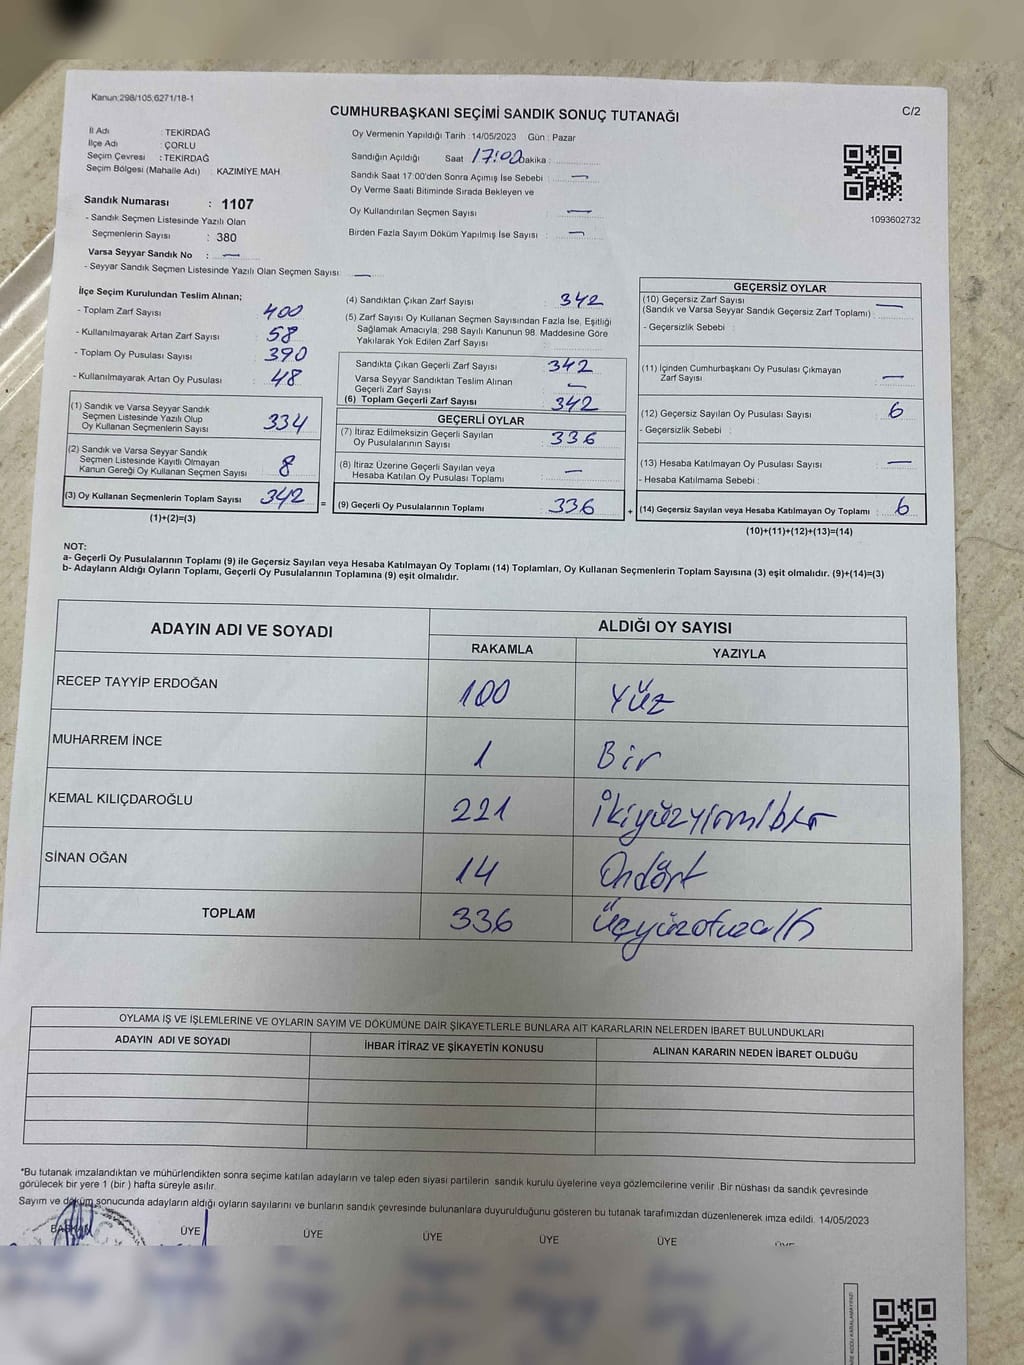 Kanun;298/105;6271/18-1
CUMHURBAŞKANI SEÇİMİ SANDIK SONUÇ TUTANAĞI
C/2
İl Adı : TEKİRDAĞ
İlçe Adı : ÇORLU
Seçim Çevresi : TEKİRDAĞ
Seçim Bölgesi (Mahalle Adı) : KAZIMİYE MAH.
Sandık Numarası : 1107
- Sandık Seçmen Listesinde Yazılı Olan
Seçmenlerin Sayısı : 380
Varsa Seyyar Sandık No : —
- Seyyar Sandık Seçmen Listesinde Yazılı Olan Seçmen Sayısı : —
Oy Vermenin Yapıldığı Tarih : 14/05/2023 Gün : Pazar
Sandığın Açıldığı Saat 17:00 Dakika :
Sandık Saat 17:00'den Sonra Açımış İse Sebebi : —
Oy Verme Saati Bitiminde Sırada Bekleyen ve
Oy Kullandırılan Seçmen Sayısı : —
Birden Fazla Sayım Döküm Yapılmış İse Sayısı : —
1093602732
İlçe Seçim Kurulundan Teslim Alınan;
- Toplam Zarf Sayısı : 400
- Kullanılmayarak Artan Zarf Sayısı : 58
- Toplam Oy Pusulası Sayısı : 390
- Kullanılmayarak Artan Oy Pusulası : 48
(1) Sandık ve Varsa Seyyar Sandık
Seçmen Listesinde Yazılı Olup
Oy Kullanan Seçmenlerin Sayısı : 334
(2) Sandık ve Varsa Seyyar Sandık
Seçmen Listesinde Kayıtlı Olmayan
Kanun Gereği Oy Kullanan Seçmen Sayısı : 8
(3) Oy Kullanan Seçmenlerin Toplam Sayısı : 342 =
(1)+(2)=(3)
(4) Sandıktan Çıkan Zarf Sayısı : 342
(5) Zarf Sayısı Oy Kullanan Seçmen Sayısından Fazla İse, Eşitliği
Sağlamak Amacıyla, 298 Sayılı Kanunun 98. Maddesine Göre
Yakılarak Yok Edilen Zarf Sayısı :
Sandıkta Çıkan Geçerli Zarf Sayısı : 342
Varsa Seyyar Sandıktan Teslim Alınan
Geçerli Zarf Sayısı : —
(6) Toplam Geçerli Zarf Sayısı : 342
GEÇERLİ OYLAR
(7) İtiraz Edilmeksizin Geçerli Sayılan
Oy Pusulalarının Sayısı : 336
(8) İtiraz Üzerine Geçerli Sayılan veya
Hesaba Katılan Oy Pusulaları Toplamı : —
(9) Geçerli Oy Pusulalarının Toplamı : 336 +
GEÇERSİZ OYLAR
(10) Geçersiz Zarf Sayısı
(Sandık ve Varsa Seyyar Sandık Geçersiz Zarf Toplamı) : —
- Geçersizlik Sebebi :
(11) İçinden Cumhurbaşkanı Oy Pusulası Çıkmayan
Zarf Sayısı : —
(12) Geçersiz Sayılan Oy Pusulası Sayısı : 6
- Geçersizlik Sebebi :
(13) Hesaba Katılmayan Oy Pusulası Sayısı : —
- Hesaba Katılmama Sebebi :
(14) Geçersiz Sayılan veya Hesaba Katılmayan Oy Toplamı : 6
(10)+(11)+(12)+(13)=(14)
NOT:
a- Geçerli Oy Pusulalarının Toplamı (9) ile Geçersiz Sayılan veya Hesaba Katılmayan Oy Toplamı (14) Toplamları, Oy Kullanan Seçmenlerin Toplam Sayısına (3) eşit olmalıdır. (9)+(14)=(3)
b- Adayların Aldığı Oyların Toplamı, Geçerli Oy Pusulalarının Toplamına (9) eşit olmalıdır.
ADAYIN ADI VE SOYADI ALDIĞI OY SAYISI
RAKAMLA YAZIYLA
RECEP TAYYİP ERDOĞAN 100 Yüz
MUHARREM İNCE 1 Bir
KEMAL KILIÇDAROĞLU 221 İkiyüzyirmibir
SİNAN OĞAN 14 Ondört
TOPLAM 336 Üçyüzotuzaltı
OYLAMA İŞ VE İŞLEMLERİNE VE OYLARIN SAYIM VE DÖKÜMÜNE DAİR ŞİKAYETLERLE BUNLARA AİT KARARLARIN NELERDEN İBARET BULUNDUKLARI
ADAYIN ADI VE SOYADI İHBAR İTİRAZ VE ŞİKAYETİN KONUSU ALINAN KARARIN NEDEN İBARET OLDUĞU
*Bu tutanak imzalandıktan ve mühürlendikten sonra seçime katılan adayların ve talep eden siyasi partilerin sandık kurulu üyelerine veya gözlemcilerine verilir. Bir nüshası da sandık çevresinde
görülecek bir yere 1 (bir ) hafta süreyle asılır.
Sayım ve döküm sonucunda adayların aldığı oyların sayılarını ve bunların sandık çevresinde bulunanlara duyurulduğunu gösteren bu tutanak tarafımızdan düzenlenerek imza edildi. 14/05/2023
BAŞKAN ÜYE ÜYE ÜYE ÜYE ÜYE ÜYE